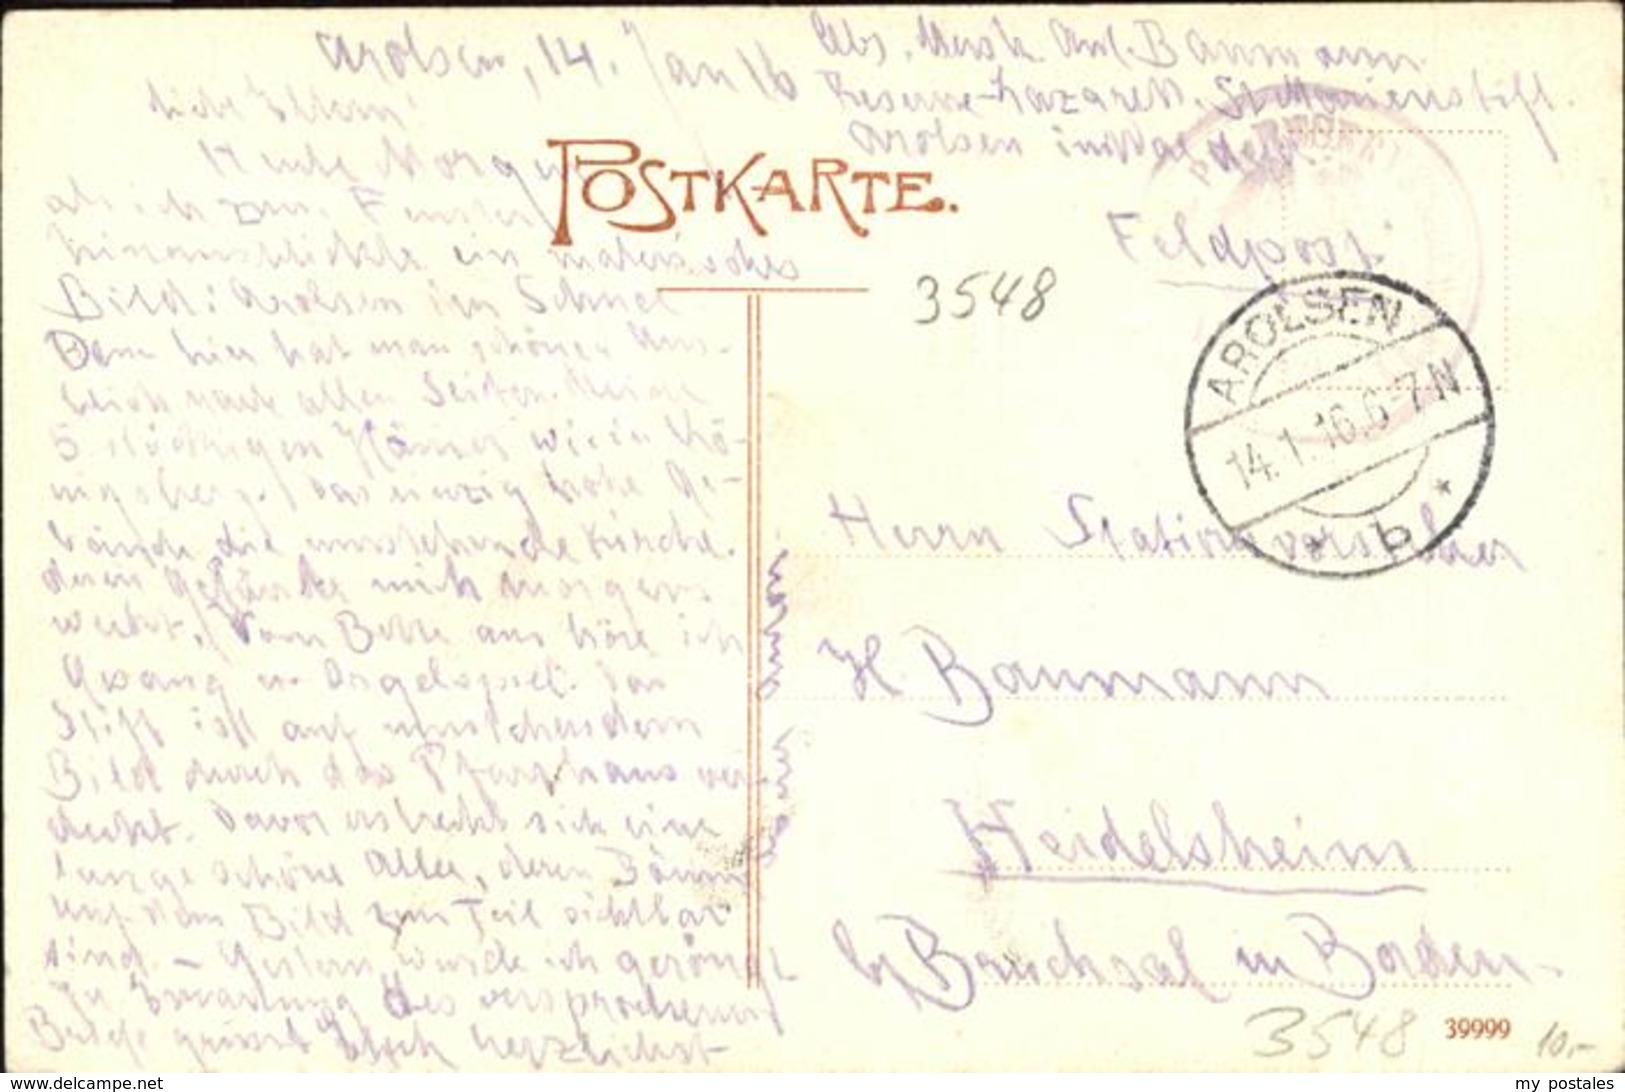 Arolsen, 14. Jan 16
Liebe Eltern!
Heute Morgen
als ich zum Fenster
hinausblickte ein malerisches
Bild: Arolsen im Schnee
Denn hier hat man schönen Aus-
blick nach allen Seiten. Keine
5 stöckigen Häuser wie in Kö-
nigsberg. Das einzig hohe Ge-
bäude die umstehende Kirche.
deren Geläute mich morgens
weckt. Vom Bette aus höre ich
Gesang u. Orgelspiel. Das
Stift ist auf umstehendem
Bild durch das Pfarrhaus ver-
deckt. Davor erstreckt sich eine
lange schöne Allee, deren Bäume
auf dem Bild zum Teil sichtbar
sind. - Gestern wurde ich geröngt
In Erwartung des versprochenen
Briefs grüsst Euch herzlichst
Abs. Musk. Baumann
Reserve-Lazarett. St Marienstift.
Arolsen in Waldeck
POSTKARTE.
Feldpost.
3548
AROLSEN
14.1.16.6-7N
* b *
Herrn Stationsvorsteher
H. Baumann
Heidelsheim
by Bruchsal in Baden-
3548
39999
10,-
www.delcampe.net
my postales